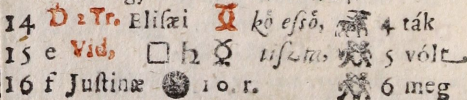 14 D 2 Tr. Elisæi ♊ kö essö, 4 ták
15 e Vid, □ ♄ ☿ tiszta, 5 vólt
16 f Justinæ 10. r. 6 meg